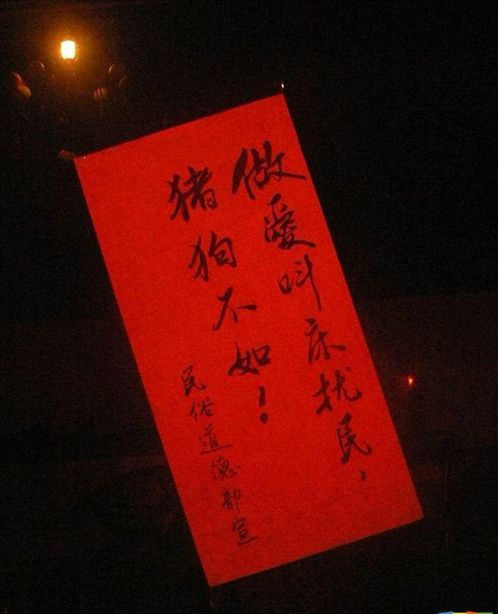 做爱叫床扰民，
猪狗不如！
民俗道德部宣